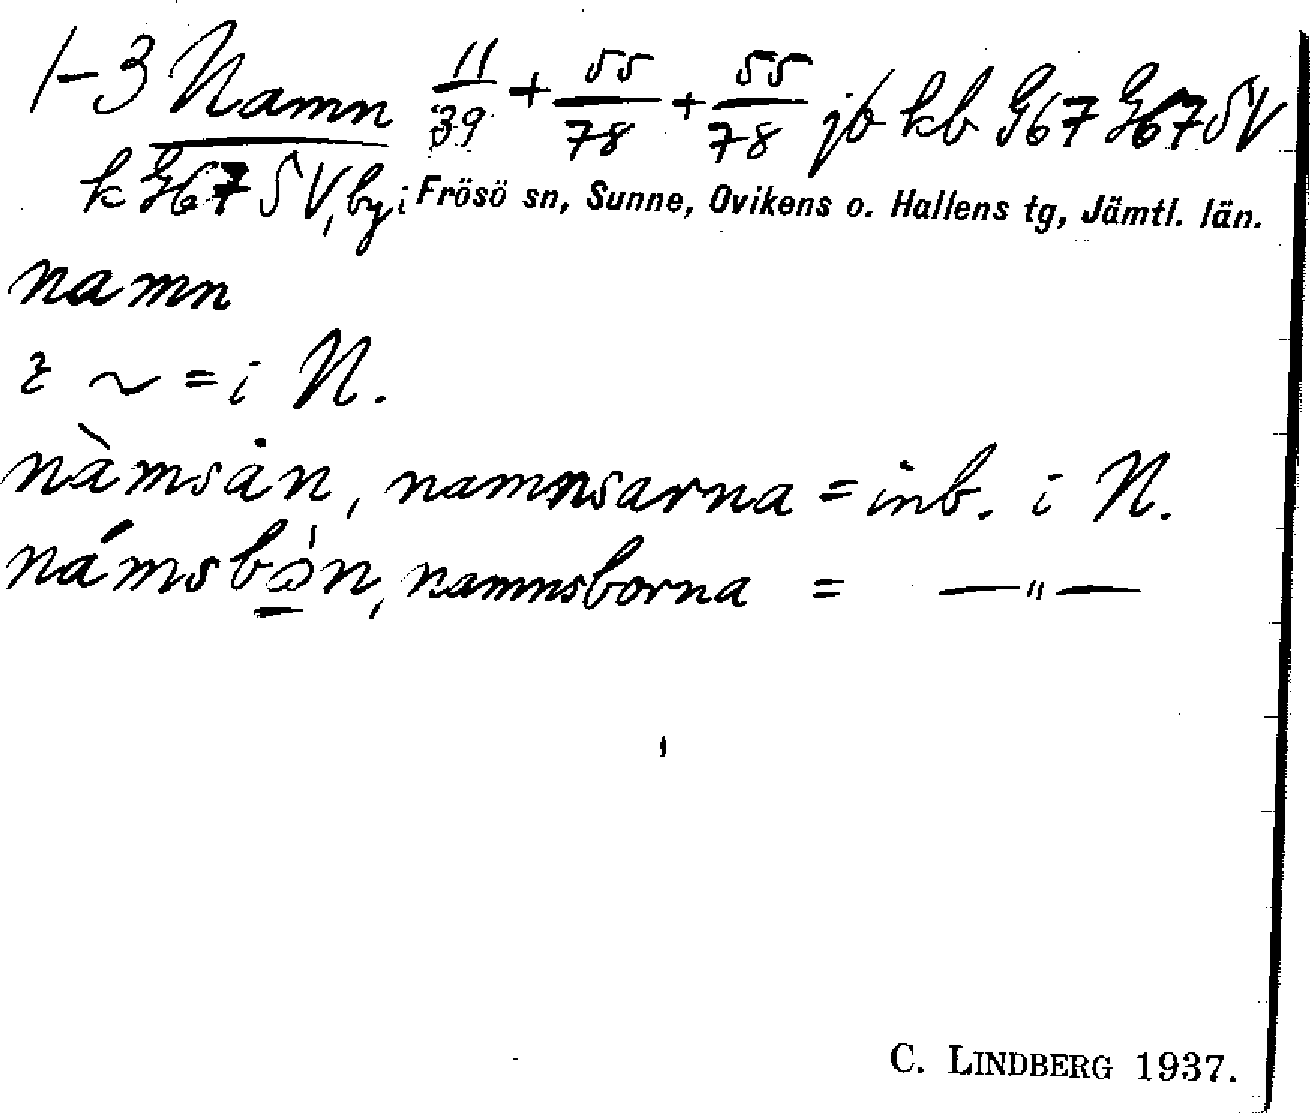 1-3 Namn 11/39 + 55/78 + 55/78 jb kb G67 G67SV
k G67SV, by i Frösö sn, Sunne, Ovikens o. Hallens tg, Jämtl. län.
namn
ɩ ~ = i N.
nàmsȧn, namnsarna = inb. i N.
námsbòn, namnsborna = —"—
C. LINDBERG 1937.